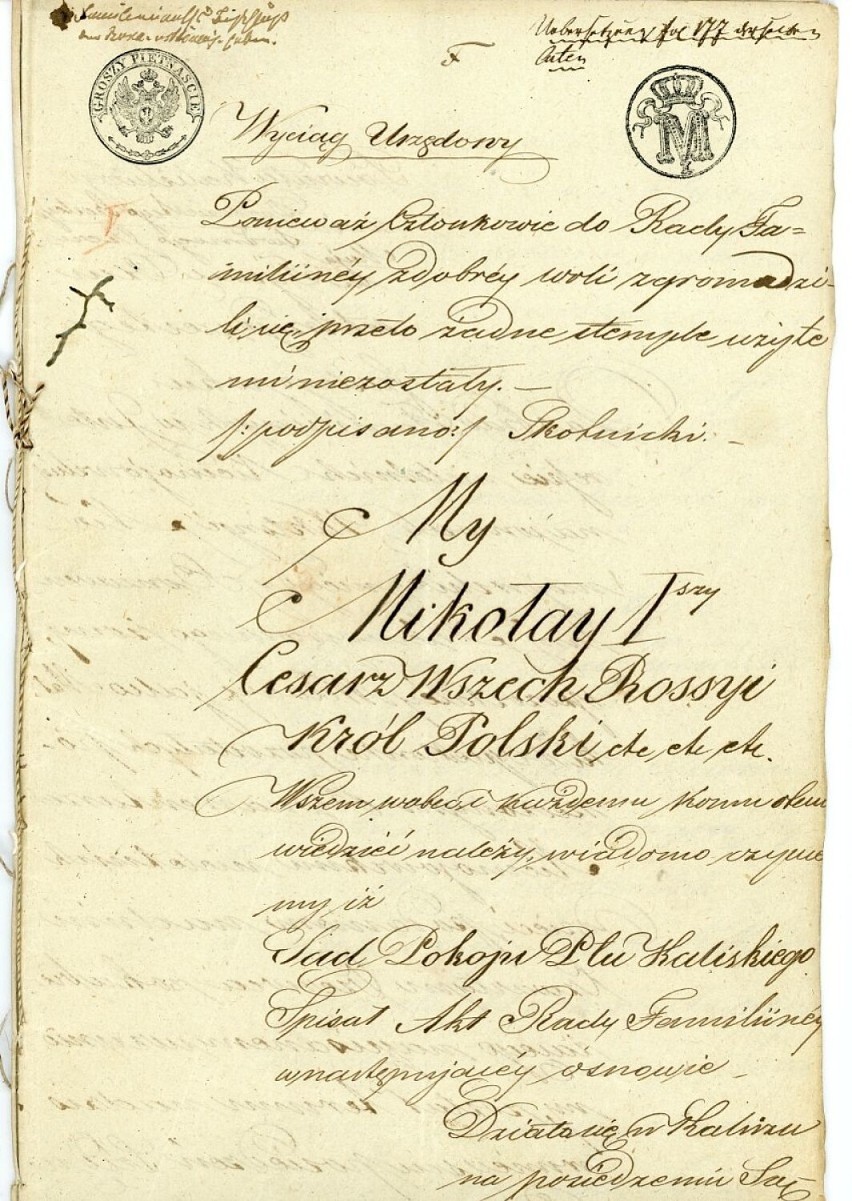 Uebersetzung fol 177 derselben
Acten
F
GROSZY PIETNAŚCIE
M
Wyciąg Urzędowy
Ponieważ Członkowie do Rady Fa=
miliinéy z dobréy woli zgromadzi-
li się, przeto żadne stemple użyte
mi niezostały. —
/: podpisano :/ Skotnicki. —
My
Mikołay Iszy
Cesarz Wszech Rossyi
Król Polski etc etc etc.
Wszem wobec i każdemu komu otem
wiedzieć należy, wiadomo czynie
my iż
Sąd Pokoju Ptu Kaliskiego
Spisał Akt Rady Familiinéy
wnastępuiącéy osnowie —
Działo się w Kaliszu
na posiedzeniu Są